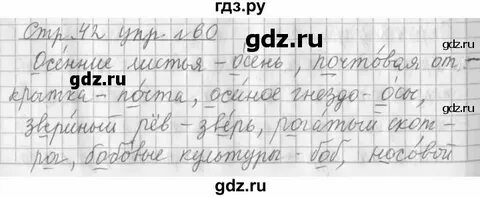 гдз.ру
Стр. 42 упр. 160
gdz.ru gdz.ru
Осе́нние листья - о́сень, почто́вая от
крытка - по́чта, оси́ное гнездо - о́сы,
звери́ный рёв - зверь, рога́тый скот -
рог, бобо́вые культуры - боб, носово́й
gdz.ru gdz.ru